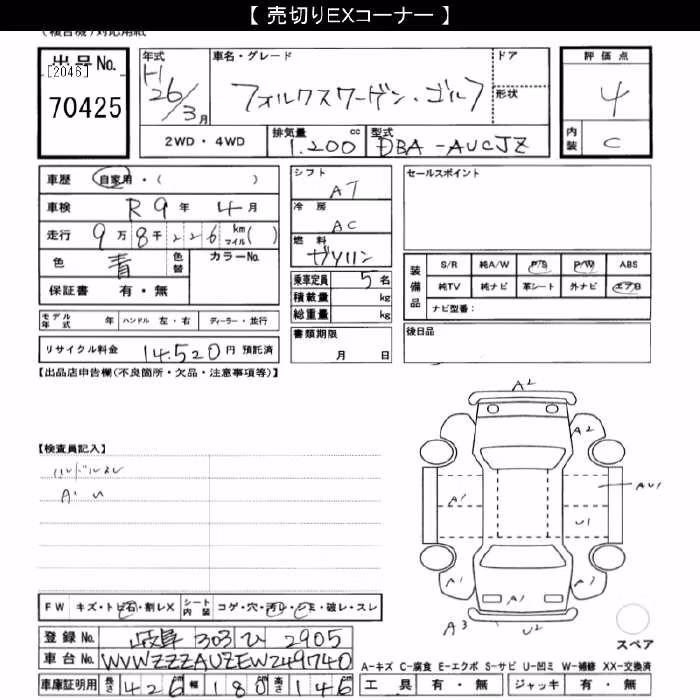 【 売切りEXコーナー 】
(複合機)対応用紙
出品No.
[2046]
70425
年式 H26/3月
車名・グレード フォルクスワーゲン・ゴルフ
ドア
形状
2WD・4WD
排気量 1.200 cc
型式 DBA-AUCJZ
評価点 4
内装 C
車歴 自家用・( )
車検 R9年4月
走行 9万8千226 km マイル( )
色 青 色替 カラーNo.
保証書 有・無
シフト AT
冷房 AC
燃料 ガソリン
乗車定員 5名
積載量 kg
総重量 kg
書類期限
月 日
セールスポイント
装備品
S/R 純A/W P/S P/W ABS
純TV 純ナビ 革シート 外ナビ エアB
ナビ型番:
後日品
モデル年式 年 ハンドル 左・右 ディーラー・並行
リサイクル料金 14.520円 預託済
【出品店申告欄(不良箇所・欠品・注意事項等)】
【検査員記入】
ハンドルスレ
A' U
FW キズ・トビ石・割レX シート内装 コゲ・穴・汚レ・シミ・破レ・スレ
登録No. 岐阜 303 ひ 2905
車台No. WVWZZZAUZEW249740
車庫証明用 長さ 426 幅 180 高さ 146
A2
A2
A1
AU1
U1
A1
A1
A2
A3
U2
スペア
A-キズ C-腐食 E-エクボ S-サビ U-凹ミ W-補修 XX-交換済
工具 有・無 ジャッキ 有・無